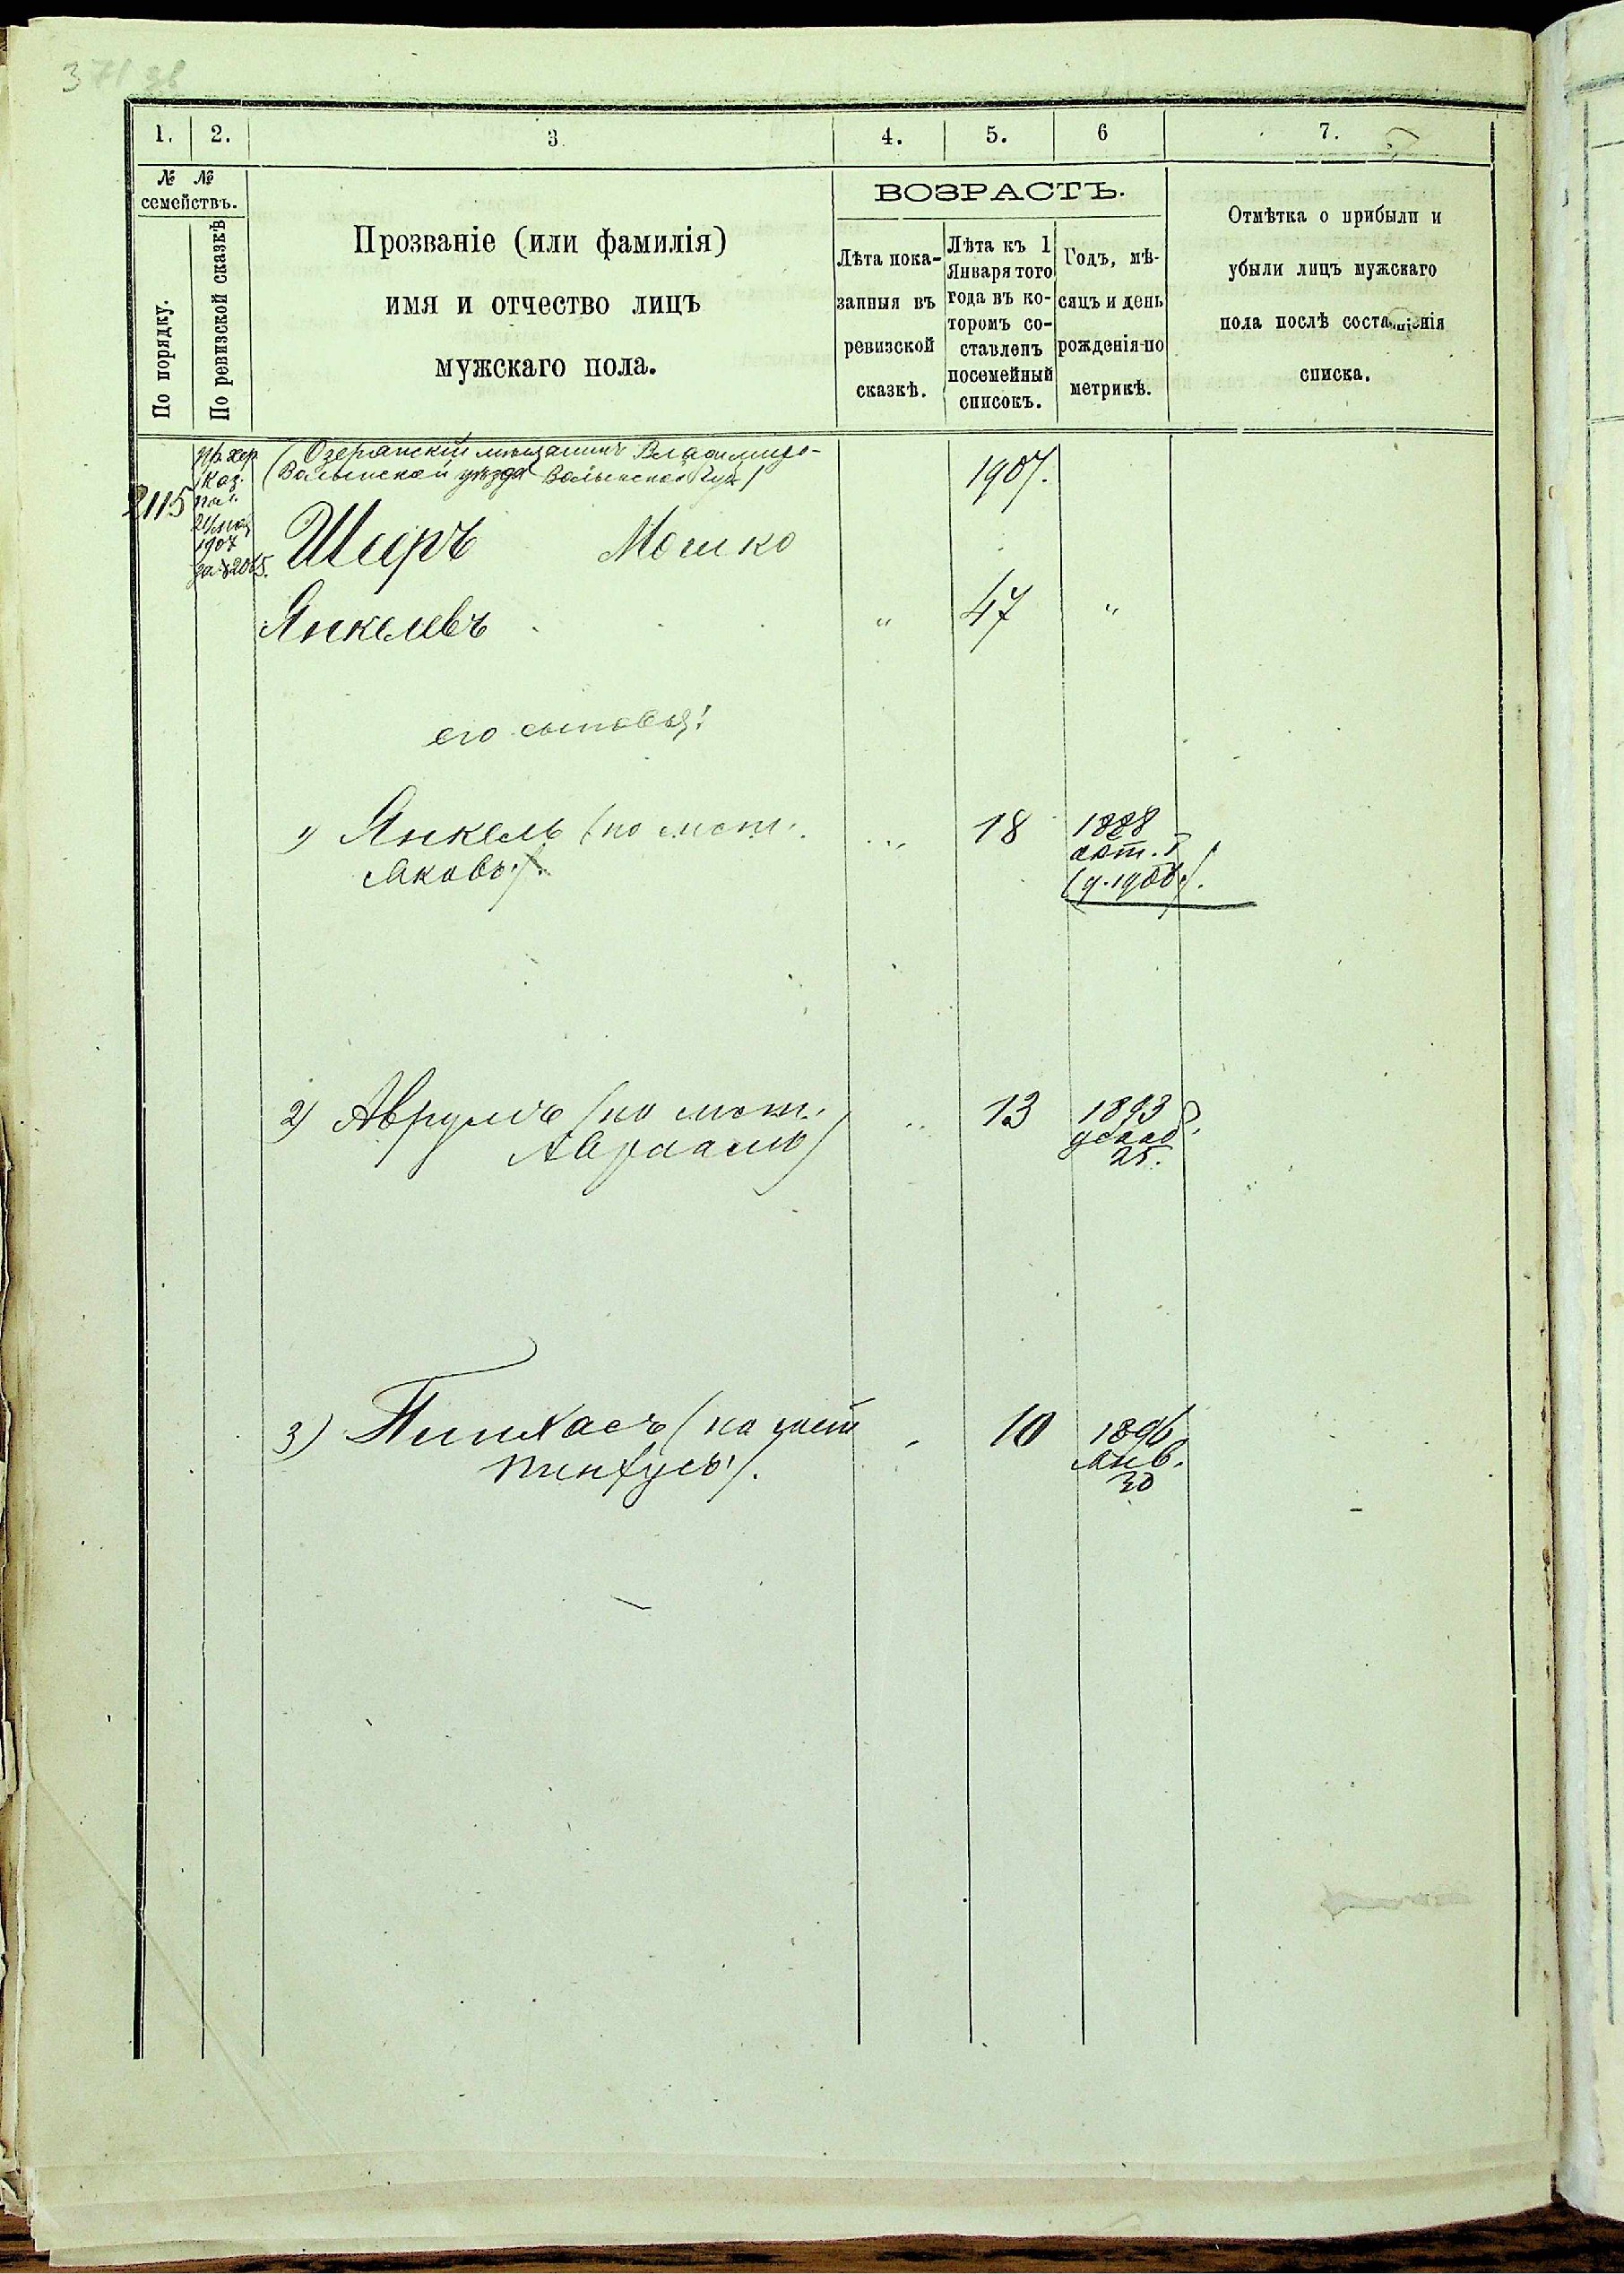 371 зв
1. 2. 3. 4. 5. 6 7.
№ №
семействъ.
По порядку.
По ревизской сказкѣ
Прозваніе (или фамилія)
имя и отчество лицъ
мужскаго пола.
ВОЗРАСТЪ.
Лѣта пока-
занныя въ
ревизской
сказкѣ.
Лѣта къ 1
Января того
года въ ко-
торомъ со-
ставленъ
посемейный
списокъ.
Годъ, мѣ-
сяцъ и день
рожденія по
метрикѣ.
Отмѣтка о прибыли и
убыли лицъ мужскаго
пола послѣ составленія
списка.
2115
пр. хер.
каз.
пал.
1907
за № 2065.
(Озерянскій мѣщанинъ Владимиро-
Волынской уѣзда Волынской губ.)
1907.
Ширъ Мошко
Янкелевъ " 47 "
его сыновья:
1) Янкель (по мет. 18 1888
Яковъ). окт. 5
(п. 1908).
2) Аврумъ (по мет. 13 1893
Авраамъ) 25.
3) Пинхасъ (по мет 10 1896
Пинхусъ). Янв.
30